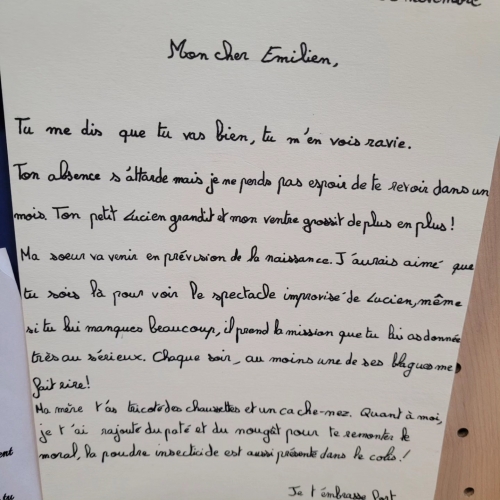 novembre
Mon cher Emilien,
Tu me dis que tu vas bien, tu m'en vois ravie.
Ton absence s'attarde mais je ne perds pas espoir de te revoir dans un
mois. Ton petit Lucien grandit et mon ventre grossit de plus en plus !
Ma soeur va venir en prévision de la naissance. J'aurais aimé que
tu sois là pour voir le spectacle improvisé de Lucien, même
si tu lui manques beaucoup, il prend la mission que tu lui as donnée
très au sérieux. Chaque soir, au moins une de ses blagues me
fait rire !
Ma mère t'as tricoté des chaussettes et un cache-nez. Quant à moi,
je t'ai rajouté du paté et du nougat pour te remonter le
moral, la poudre insecticide est aussi présente dans le colis !
Je t'embrasse fort